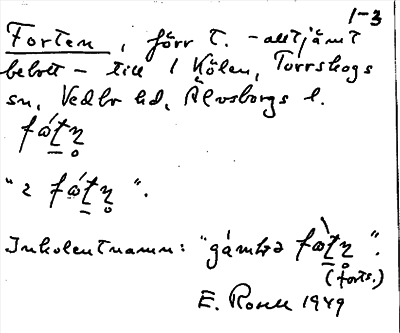 1-3
Forten, förr t. - alltjämt
bebott - till 1 Kölen, Torrskogs
sn, Vedbo hd, Älvsborgs l.
fǻt̲n̥
"2 fǻt̲n̥".
Inkolentnamn: "gámbɜ fæ̀t̲n̥".
(forts.)
E. Rosell 1949